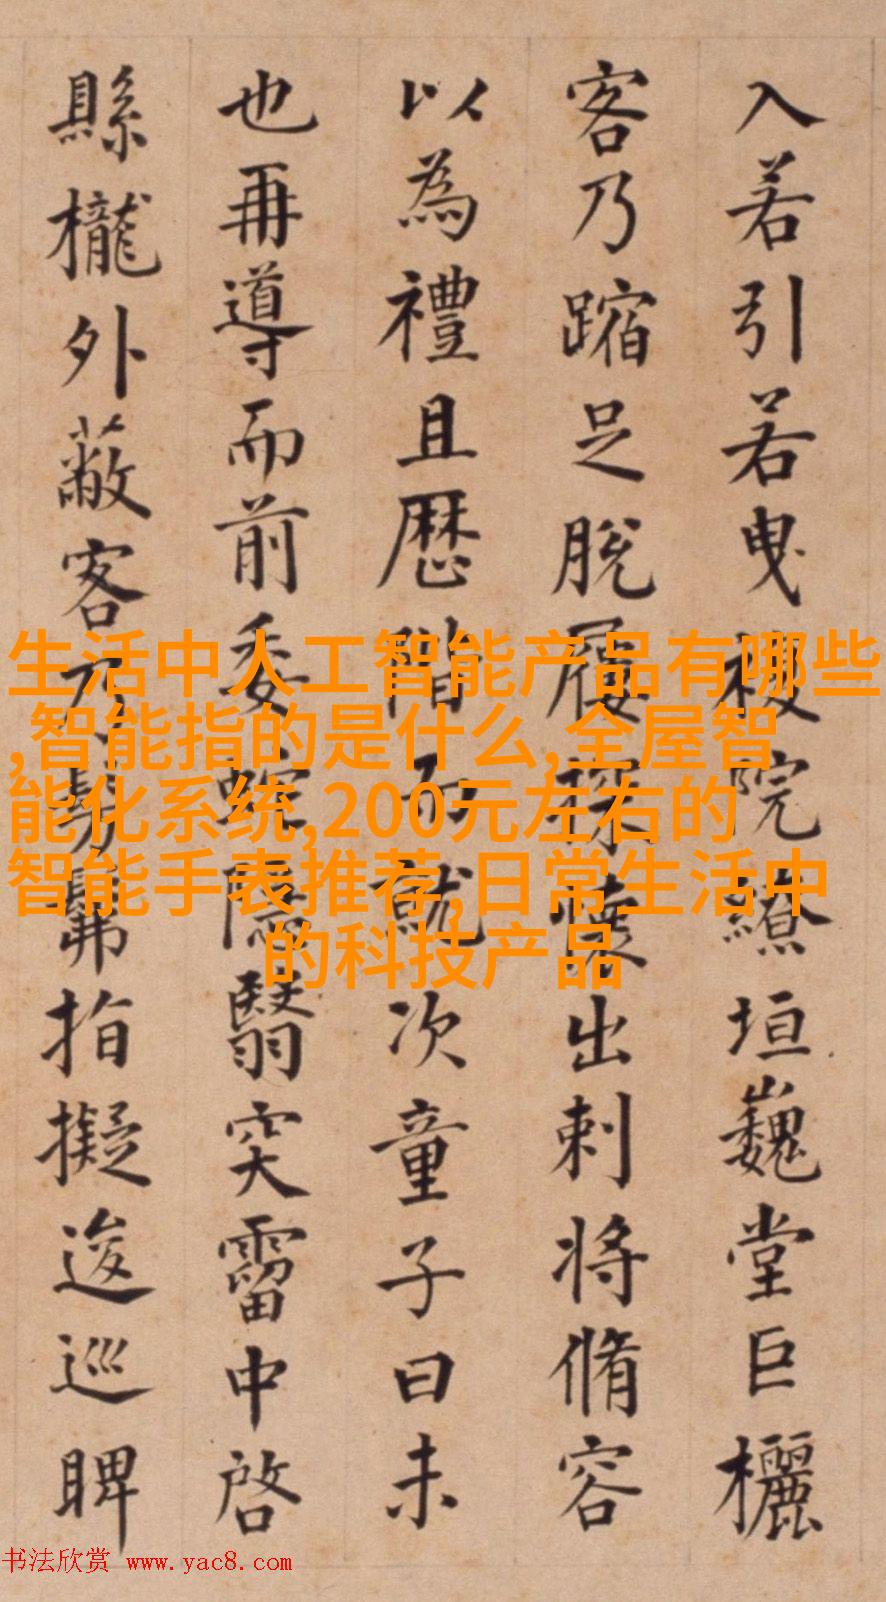 入若引若曳複院繚垣巍堂巨欐
客乃蹜足脫屨探懷出刺將脩容
以為禮且歷階而就次童子曰未
也再導而前委蛇隱翳突霤中啓
縣櫳外蔽客乃髣髴指擬逡巡睥
生活中人工智能产品有哪些
,智能指的是什么,全屋智
能化系统,200元左右的
智能手表推荐,日常生活中
的科技产品
书法欣赏 www.yac8.com